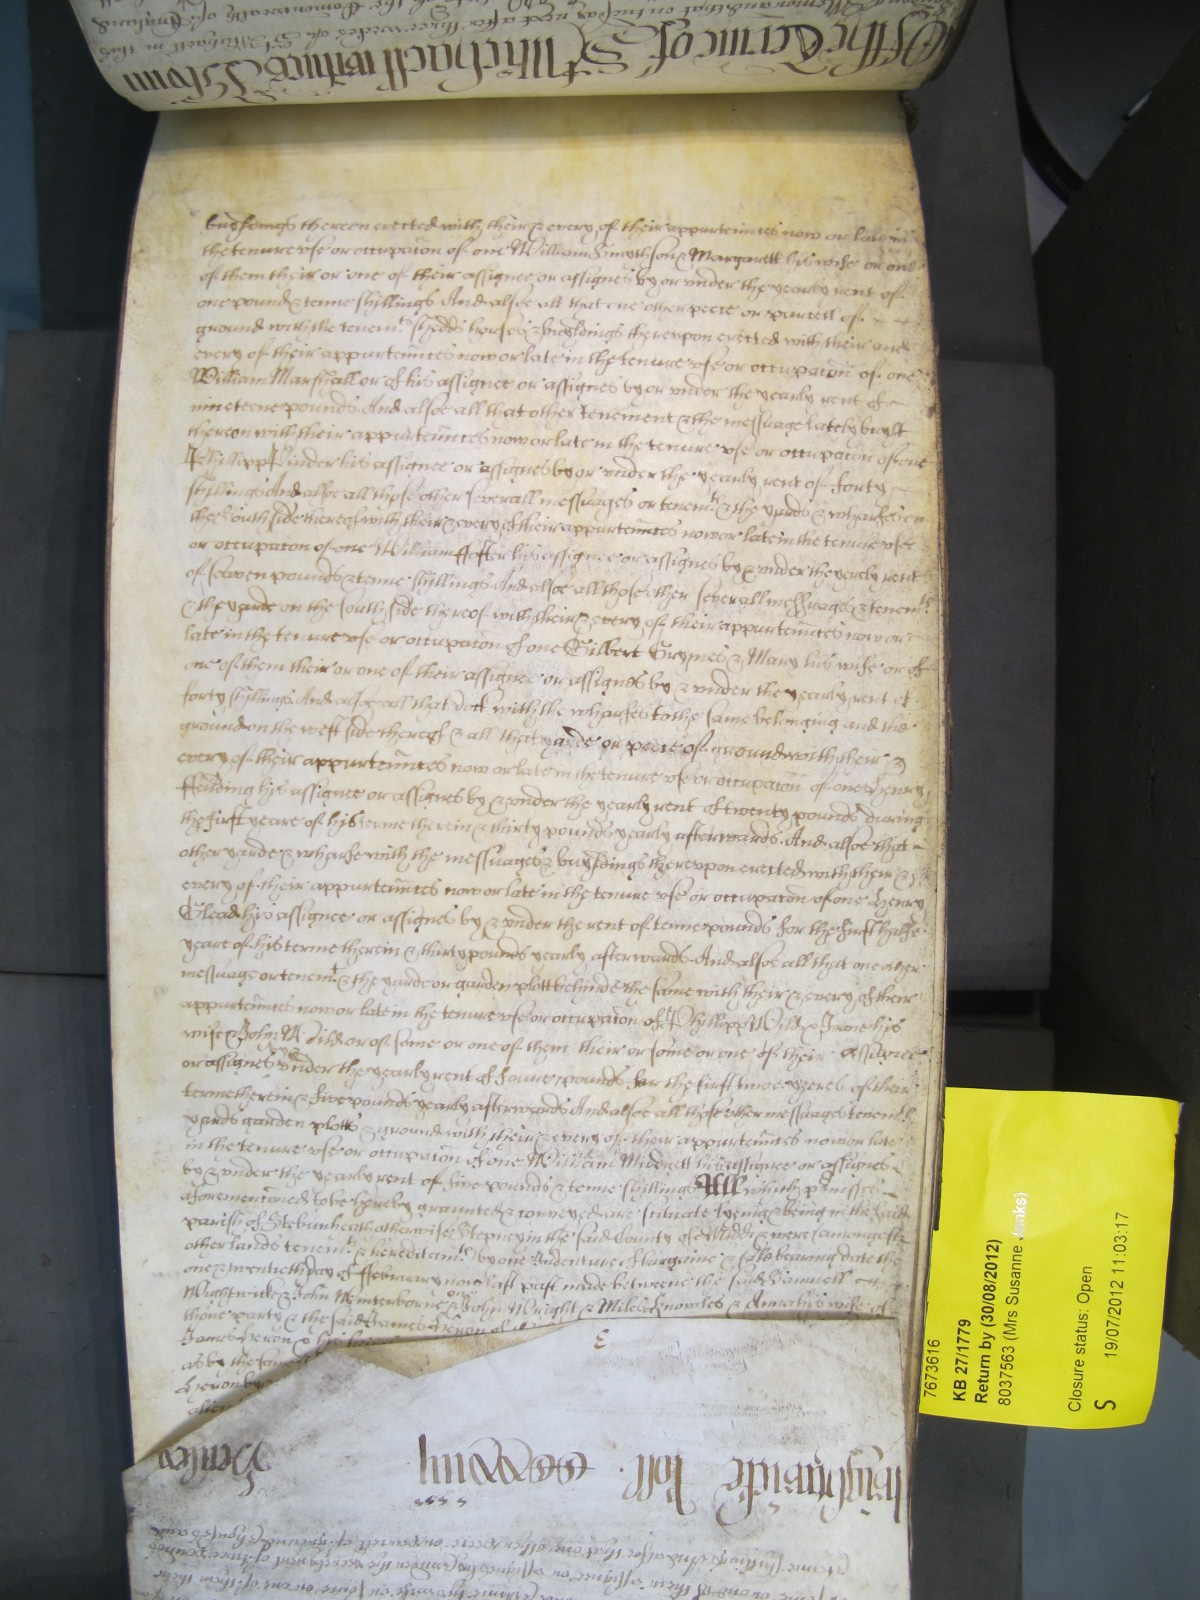 Of the Terme of St Michaell witnes
buyldings thereon erected with their & every of their appurtenñces now or late in
the tenure vse or occupacõn of one William Smythson & Margarett his wife or one
of them their or one of their assignee or assignes by or vnder the yearly rent of
one pound & tenne shyllings And alsoe all that one other peece or parcell of
ground with the tenemts shedds howses & buyldings therevpon erected with their and
every of their appurtenñces now or late in the tenure vse or occupacõn of one
William Marshall or of his assignee or assignes by or vnder the yearly rent of
nineteene pounds And alsoe all that other tenement & the messuage lately buylt
thereon with their appurtenñces now or late in the tenure vse or occupacõn of one
Phillipp Pinder his assignee or assignes by or vnder the yearly rent of forty
shyllings And alsoe all those other severall messuages or tenemts & the yards & wharfes on
the South side thereof with their & every of their appurtenñces now or late in the tenure vse
or occupacõn of one William ffoster his assignee or assignes by & vnder the yerely rent
of seaven pounds & tenne shyllings And alsoe all those other severall messuages & tenemts
& the yarde on the south side thereof with their & every of their appurtenñces now or
late in the tenure vse or occupacõn of one Gilbert Grymes & Mary his wife or of
one of them their or one of their assignee or assignes by & vnder the yearly rent of
forty shyllings And alsoe all that dock with the wharfes to the same belonging and the
ground on the west side thereof & all that yarde or peece of ground with their &
every of their appurtenñces now or late in the tenure vse or occupacõn of one Henry
ffeilding his assignee or assignes by & vnder the yearly rent of twenty pounds during
the first yeare of his terme therein & thirty pounds yearly afterwards And alsoe that
other yarde & wharfe with the messuages & buyldings therevpon erected with their &
every of their appurtenñces now or late in the tenure vse or occupacõn of one Henry
Glead his assignee or assignes by & vnder the rent of tenne pounds for the first halfe
yeare of his terme therein & thirty pounds yearly afterwards And alsoe all that one other
messuage or tenemt & the yarde or garden plott behinde the same with their & every of their
appurtenñces now or late in the tenure vse or occupacõn of Phillipp Wild & Jane his
wife & John Wild or of some or one of them their or some or one of their assignee
or assignes vnder the yearly rent of foure pounds for the first twoe yeares of their
terme therein & five pounds yearly afterwards And alsoe all those other messuages tenemts
yards garden plotts & ground with their & every of their appurtenñces now or late
in the tenure vse or occupacõn of one William Midgett his assignee or assignes
by & vnder the yearly rent of five pounds & tenne shillings All which pmisses
aforemenc̃oned to be hereby graunted & conveyed are scituate lyeing & being in the said
parish of Stebunheath otherwise Stepney in the said County of Middx & were (amongest
other lands tenemts & hereditamts) by one Indenture of bargaine & sale bearing date the
one & twentieth day of ffebruary now last past made betweene the said Samuell
Wightwicke & John Winterborne & John Wright & Miles Knowles & Anna his wife of
thone party & the said James Heron of
James Heron & his heires
as by the same
Heron by
3
roll
Henley
7673616
KB 27/1779
Return by (30/08/2012)
8037563 (Mrs Susanne Jenks)
Closure status: Open
S 19/07/2012 11:03:17